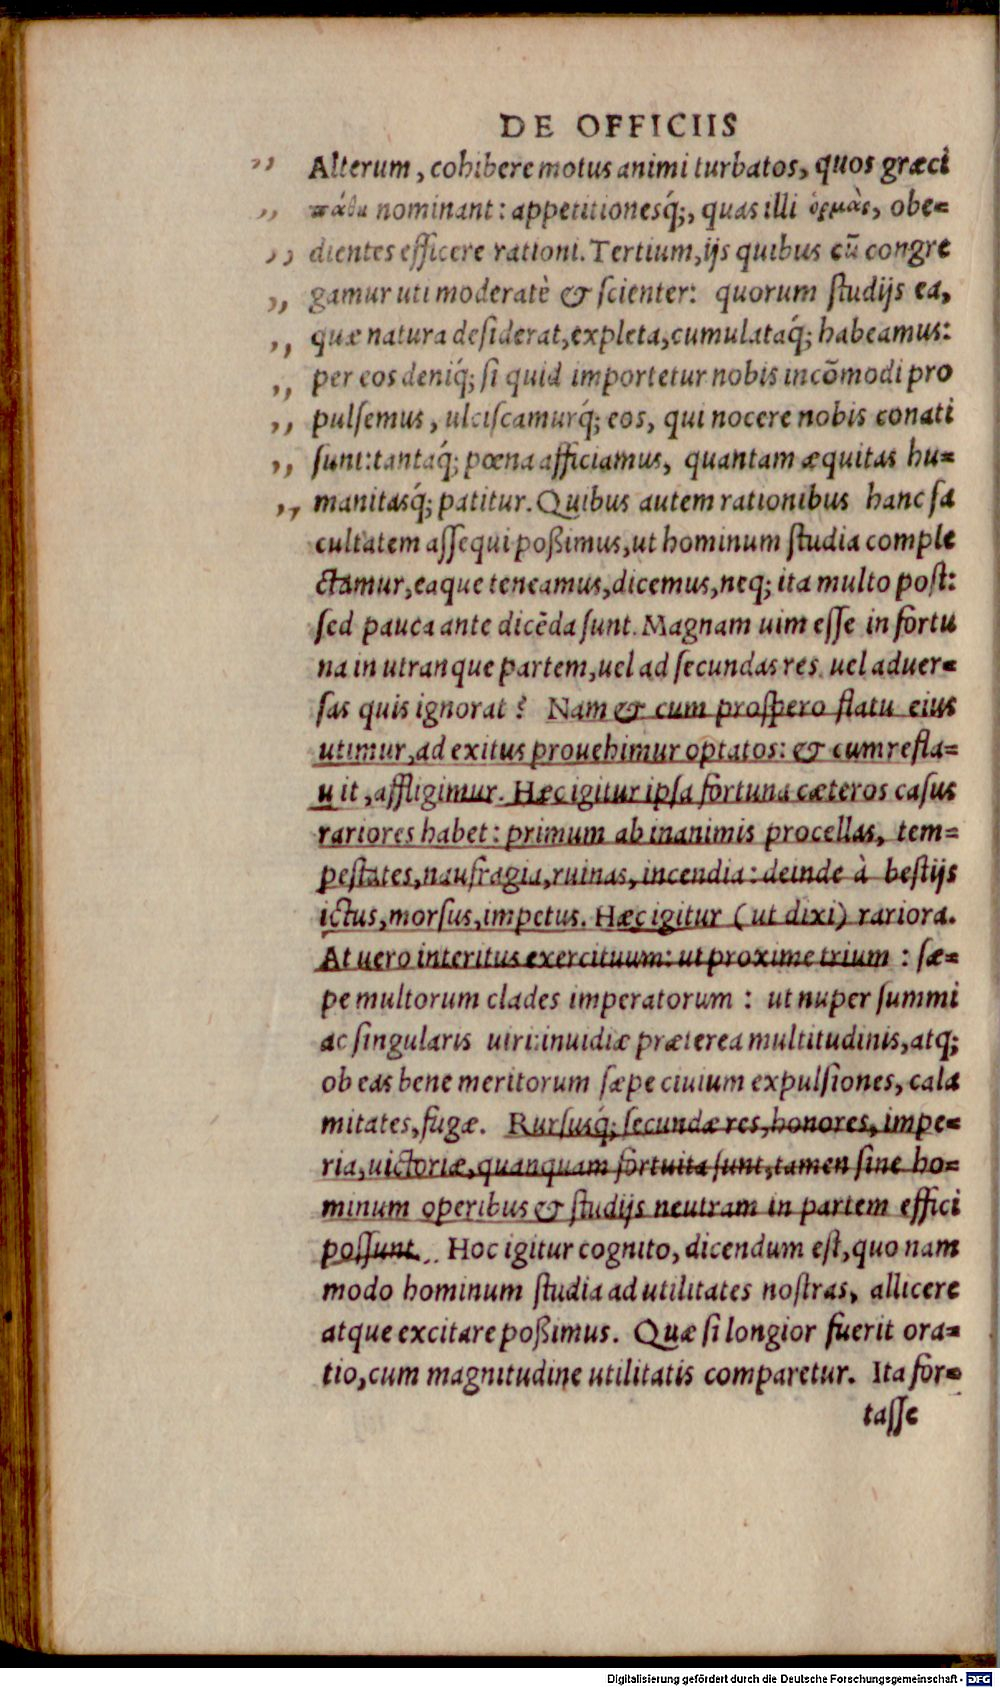 DE OFFICIIS
,, Alterum, cohibere motus animi turbatos, quos græci
,, πάθη nominant: appetitionesq́;, quas illi ὁρμὰς, obe=
,, dientes efficere rationi. Tertium, ijs quibus cū congre
,, gamur uti moderatè & scienter: quorum studijs ea,
,, quæ natura desiderat, expleta, cumulataq́; habeamus:
,, per eos deniq́; si quid importetur nobis incōmodi pro
,, pulsemus, ulciscamurq́; eos, qui nocere nobis conati
,, sunt: tantaq́; pœna afficiamus, quantam æquitas hu=
,, manitasq́; patitur. Quibus autem rationibus hanc fa
cultatem assequi poßimus, ut hominum studia comple
ctamur, eaque teneamus, dicemus, neq; ita multo post:
sed pauca ante dicēda sunt. Magnam uim esse in fortu
na in utranque partem, uel ad secundas res. uel aduer=
sas quis ignorat? Nam & cum prospero flatu eius
utimur, ad exitus prouehimur optatos: & cum refla=
uit, affligimur. Hæc igitur ipsa fortuna cæteros casus
rariores habet: primum ab inanimis procellas, tem=
pestates, naufragia, ruinas, incendia: deinde à bestijs
ictus, morsus, impetus. Hæc igitur (ut dixi) rariora.
At uero interitus exercituum: ut proxime trium: sæ=
pe multorum clades imperatorum: ut nuper summi
ac singularis uiri: inuidiæ præterea multitudinis, atq;
ob eas bene meritorum sæpe ciuium expulsiones, cala
mitates, fugæ. Rursusq́; secundæ res, honores, impe=
ria, uictoriæ, quanquam fortuita sunt, tamen sine ho=
minum operibus & studijs neutram in partem effici
possunt. Hoc igitur cognito, dicendum est, quo nam
modo hominum studia ad utilitates nostras, allicere
atque excitare poßimus. Quæ si longior fuerit ora=
tio, cum magnitudine utilitatis comparetur. Ita for=
tasse
Digitalisierung gefördert durch die Deutsche Forschungsgemeinschaft - DFG